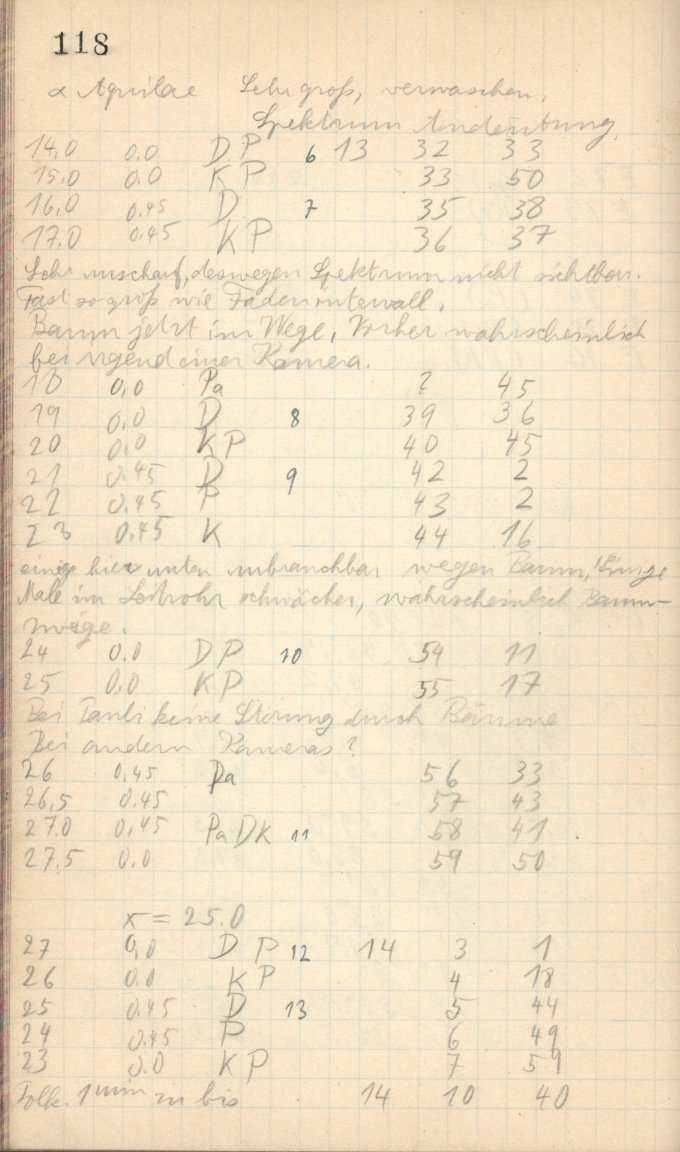 118
α Aquilae Sehr groß, verwaschen,
Spektrum Andeutung.
14.0 0.0 D P 6 13 32 33
15.0 0.0 K P 33 50
16.0 0.45 D 7 35 38
17.0 0.45 K P 36 37
Sehr unscharf, deswegen Spektrum nicht sichtbar.
Fast so groß wie Fadenintervall.
Baum jetzt im Wege, Vorher wahrscheinlich
bei irgend einer Kamera.
18 0,0 Pa ? 45
19 0,0 D 8 39 36
20 0,0 K P 40 45
21 0.45 D 9 42 2
22 0.45 P 43 2
23 0.45 K 44 16
einige hier unten unbrauchbar wegen Baum, Einige
Male im Leitrohr schwächer, wahrscheinlich Baum
24 0.0 D P 10 54 11
25 0,0 K P 55 17
Bei keine Störung durch Bäume
Bei andern Kameras?
26 0,45 Pa 56 33
26,5 0.45 57 43
27.0 0,45 Pa D K 11 58 41
27.5 0.0 59 50
x = 25.0
27 0,0 D P 12 14 3 1
26 0.0 K P 4 18
25 0.45 D 13 5 44
24 0.45 P 6 49
23 0.0 K P 7 59
1 min zu bis 14 10 40